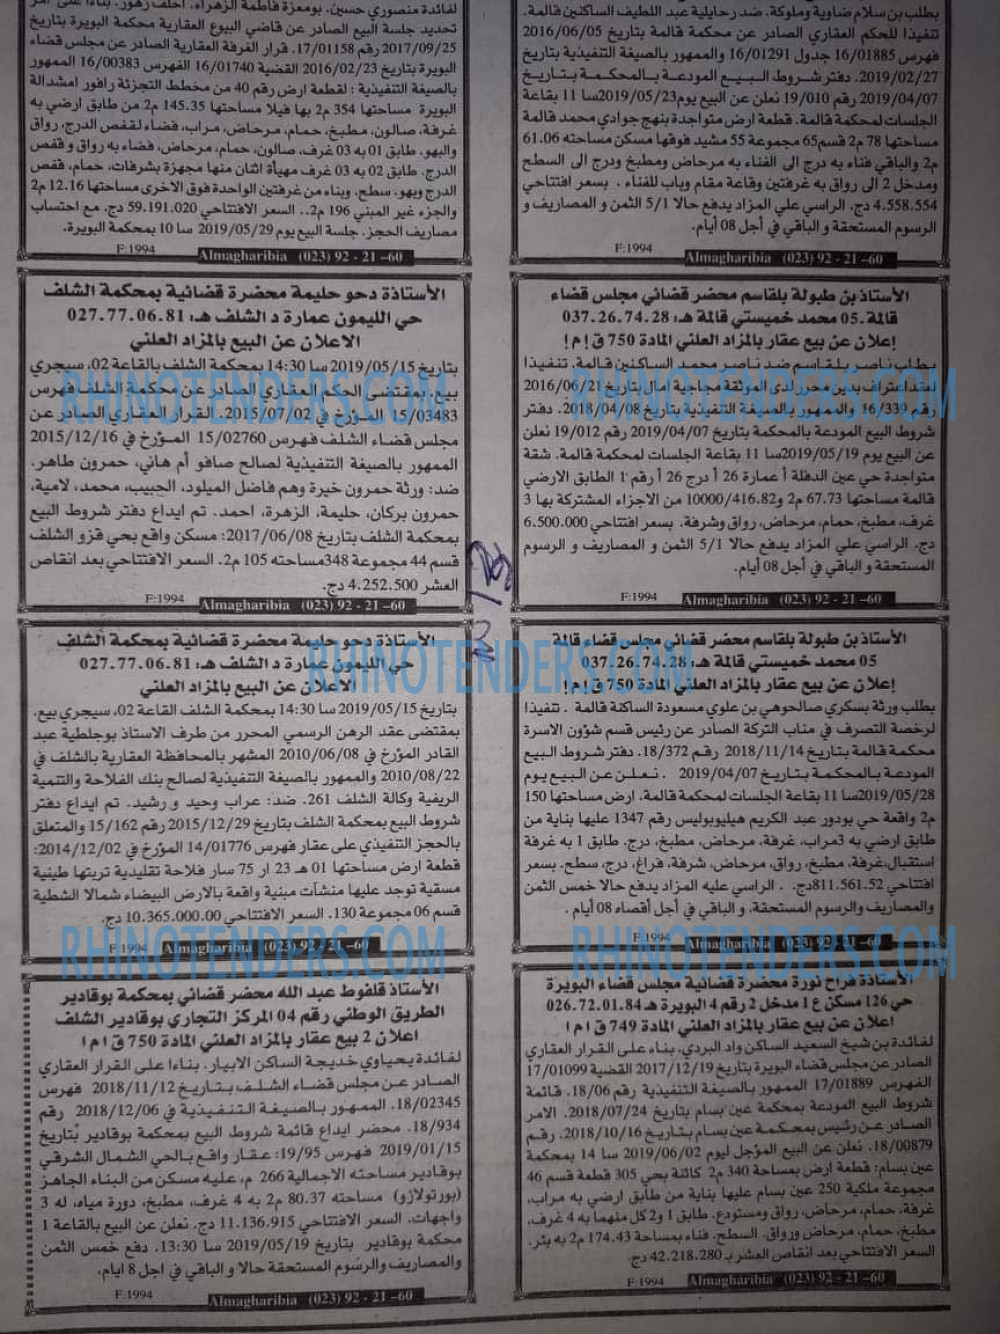 بطلب بن سلام ضاوية وملوكة. ضد رحايلية عبد اللطيف الساكنين قالمة.
تنفيذا للحكم العقاري الصادر عن محكمة قالمة بتاريخ 2016/06/05
فهرس 16/01885 جدول 16/01291 والممهور بالصيغة التنفيذية بتاريخ
2019/02/27. دفتر شروط البيع المودعة بالمحكمة بتاريخ
2019/04/07 رقم 19/010 نعلن عن البيع يوم2019/05/23سا 11 بقاعة
الجلسات لمحكمة قالمة. قطعة ارض متواجدة بنهج جوادي محمد قالمة
مساحتها 78 م2 قسم65 مجموعة 55 مشيد فوقها مسكن مساحته 61.06
م2 والباقي فناء به درج الى الفناء به مرحاض ومطبخ ودرج الى السطح
ومدخل 2 الى رواق به غرفتين وقاعة مقام وباب للفناء . بسعر افتتاحي
4.558.554 دج. الراسي علي المزاد يدفع حالا 5/1 الثمن و المصاريف و
الرسوم المستحقة و الباقي في أجل 08 أيام.
F:1994
Almagharibia (023) 92 - 21 -60
الأستاذ بن طبولة بلقاسم محضر قضائي مجلس قضاء
قالمة.05 محمد خميستي قالمة هـ: 037.26.74.28
إعلان عن بيع عقار بالمزاد العلني المادة 750 ق إ م إ
بطلب ناصر بلقاسم ضد ناصر محمد الساكنين قالمة. تنفيذا
لعقد اعتراف بدين محرر لدى الموثقة مجاجية امال بتاريخ 2016/06/21
رقم 16/339 والممهور بالصيغة التنفيذية بتاريخ 2018/04/08. دفتر
شروط البيع المودعة بالمحكمة بتاريخ 2019/04/07 رقم 19/012 نعلن
عن البيع يوم 2019/05/19سا 11 بقاعة الجلسات لمحكمة قالمة. شقة
متواجدة حي عين الدفلة أ عمارة 26 أ درج 26 أ رقم 1 الطابق الارضي
قالمة مساحتها 67.73 م2 و10000/416.82 من الاجزاء المشتركة بها 3
غرف، مطبخ، حمام، مرحاض، رواق وشرفة. بسعر افتتاحي 6.500.000
دج. الراسي علي المزاد يدفع حالا 5/1 الثمن و المصاريف و الرسوم
المستحقة و الباقي في أجل 08 أيام.
F:1994
Almagharibia (023) 92 - 21 -60
الأستاذ بن طبولة بلقاسم محضر قضائي مجلس قضاء قالمة
05 محمد خميستي قالمة هـ: 037.26.74.28
إعلان عن بيع عقار بالمزاد العلني المادة 750 ق إ م إ
بطلب ورثة بسكري صالحوهي بن علوي مسعودة الساكنة قالمة . تنفيذا
لرخصة التصرف في مناب التركة الصادر عن رئيس قسم شؤون الاسرة
محكمة قالمة بتاريخ 2018/11/14 رقم 18/372. دفتر شروط البيع
المودعة بالمحكمة بتاريخ 2019/04/07 . نعلن عن البيع يوم
2019/05/28سا 11 بقاعة الجلسات لمحكمة قالمة. ارض مساحتها 150
م2 واقعة حي بودور عبد الكريم هيليوبوليس رقم 1347 عليها بناية من
طابق ارضي به 3مراب، غرفة، مرحاض، مطبخ، درج. طابق 1 به غرفة
استقبال،غرفة، مطبخ، رواق، مرحاض، شرفة، فراغ، درج، سطح. بسعر
افتتاحي 811.561.52دج. . الراسي عليه المزاد يدفع حالا خمس الثمن
والمصاريف والرسوم المستحقة، و الباقي في أجل أقصاه 08 أيام .
F:1994
Almagharibia (023) 92 - 21 -60
الأستاذة فراح نورة محضرة قضائية مجلس قضاء البويرة
حي 126 مسكن ع 1 مدخل 2 رقم 4 البويرة هـ 026.72.01.84
اعلان عن بيع عقار بالمزاد العلني المادة 749 ق ا م ا
لفائدة بن شيخ السعيد الساكن واد البردي. بناء على القرار العقاري
الصادر عن مجلس قضاء البويرة بتاريخ 2017/12/19 القضية 17/01099
الفهرس 17/01889 الممهور بالصيغة التنفيذية رقم 18/06. قائمة
شروط البيع المودعة بمحكمة عين بسام بتاريخ 2018/07/24. الامر
الصادر عن رئيس بمحكمة عين بسام بتاريخ 2018/10/16. رقم
18/00879. نعلن عن البيع المؤجل ليوم 2019/06/02 سا 14 بمحكمة
عين بسام: قطعة ارض بمساحة 340 م2 كائنة بحي 305 قطعة قسم 46
مجموعة ملكية 250 عين بسام عليها بناية من طابق ارضي به مراب،
غرفة، حمام، مرحاض، رواق ومستودع. طابق 1 و2 كل منهما به 4 غرف،
مطبخ، حمام، مرحاض ورواق. السطح. فناء بمساحة 174.43 م2 به بئر.
السعر الافتتاحي بعد انقاص العشر بـ 42.218.280 دج.
F:1994
Almagharibia (023) 92 - 21 -60
لفائدة منصوري حسين. بومعزة فاطمة الزهراء.
تحديد جلسة البيع الصادر عن قاضي البيوع العقارية محكمة البويرة بتاريخ
2017/09/25 رقم 17/01158. قرار الغرفة العقارية الصادر عن مجلس قضاء
البويرة بتاريخ 2016/02/23 القضية 16/01740 الفهرس 16/00383 الممهور
بالصيغة التنفيذية : لقطعة ارض رقم 40 من مخطط التجزئة رافور امشدالة
البويرة مساحتها 354 م2 بها فيلا مساحتها 145.35 م2 من طابق ارضي به
غرفة، صالون، مطبخ، حمام، مرحاض، مراب، فضاء لقفص الدرج، رواق
والبهو. طابق 01 به 03 غرف، صالون، حمام، مرحاض، فضاء به رواق و قفص
الدرج. طابق 02 به 03 غرف مهيأة اثنان منها مجهزة بشرفات، حمام، قفص
الدرج وبهو. سطح، وبناء من غرفتين الواحدة فوق الاخرى مساحتها 12.16 م2
والجزء غير المبني 196 م2.. السعر الافتتاحي 59.191.020 دج. مع احتساب
مصاريف الحجز. جلسة البيع يوم 2019/05/29 سا 10 بمحكمة البويرة.
F:1994
Almagharibia (023) 92 - 21 -60
الأستاذة دحو حليمة محضرة قضائية بمحكمة الشلف
حي الليمون عمارة د الشلف هـ: 027.77.06.81
الاعلان عن البيع بالمزاد العلني
بتاريخ 2019/05/15 سا 14:30 بمحكمة الشلف بالقاعة 02، سيجري
بيع، بمقتضى الحكم العقاري الصادر عن محكمة الشلف فهرس
15/03483 المؤرخ في 2015/07/02. القرار العقاري الصادر عن
مجلس قضاء الشلف فهرس 15/02760 المؤرخ في 2015/12/16
الممهور بالصيغة التنفيذية لصالح صافو أم هاني، حمرون طاهر.
ضد: ورثة حمرون خيرة وهم فاضل الميلود، الحبيب، محمد، لامية،
حمرون بركان، حليمة، الزهرة، احمد. تم ايداع دفتر شروط البيع
بمحكمة الشلف بتاريخ 2017/06/08: مسكن واقع بحي قزو الشلف
قسم 44 مجموعة 348مساحته 105 م2. السعر الافتتاحي بعد انقاص
العشر 4.252.500 دج.
F:1994
Almagharibia (023) 92 - 21 -60
الأستاذة دحو حليمة محضرة قضائية بمحكمة الشلف
حي الليمون عمارة د الشلف هـ: 027.77.06.81
الاعلان عن البيع بالمزاد العلني
بتاريخ 2019/05/15 سا 14:30 بمحكمة الشلف القاعة 02، سيجري بيع.
بمقتضى عقد الرهن الرسمي المحرر من طرف الاستاذ بوجلطية عبد
القادر المؤرخ في 2010/06/08 المشهر بالمحافظة العقارية بالشلف في
2010/08/22 والممهور بالصيغة التنفيذية لصالح بنك الفلاحة والتنمية
الريفية وكالة الشلف 261. ضد: عراب وحيد و رشيد. تم ايداع دفتر
شروط البيع بمحكمة الشلف بتاريخ 2015/12/29 رقم 15/162 والمتعلق
بالحجز التنفيذي على عقار فهرس 14/01776 المؤرخ في 2014/12/02:
قطعة ارض مساحتها 01 هـ 23 ار 75 سار فلاحة تقليدية تربتها طينية
مسقية توجد عليها منشآت مبنية واقعة بالارض البيضاء شمالا الشطية
قسم 06 مجموعة 130. السعر الافتتاحي 10.365.000.00 دج.
F:1994
Almagharibia (023) 92 - 21 -60
الأستاذ قلفوط عبد الله محضر قضائي بمحكمة بوقادير
الطريق الوطني رقم 04 المركز التجاري بوقادير الشلف
اعلان 2 بيع عقار بالمزاد العلني المادة 750 ق ا م ا
لفائدة يحياوي خديجة الساكن الابيار. بناءا على القرار العقاري
الصادر عن مجلس قضاء الشلف بتاريخ 2018/11/12 فهرس
18/02345. الممهور بالصيغة التنفيذية في 2018/12/06 رقم
18/934. محضر ايداع قائمة شروط البيع بمحكمة بوقادير بتاريخ
2019/01/15 فهرس 19/95: عقار واقع بالحي الشمال الشرقي
بوقادير مساحته الاجمالية 266 م، عليه مسكن من البناء الجاهز
(بورتولازو) مساحته 80.37 م2 به 4 غرف، مطبخ، دورة مياه، له 3
واجهات. السعر الافتتاحي 11.136.915 دج. نعلن عن البيع بالقاعة 1
محكمة بوقادير بتاريخ 2019/05/19 سا 13:30. دفع خمس الثمن
والمصاريف والرسوم المستحقة حالا و الباقي في اجل 8 ايام.
F:1994
Almagharibia (023) 92 - 21 -60
RHINOTENDERS.COM
RHINOTENDERS.COM
RHINOTENDERS.COM
RHINOTENDERS.COM
RHINOTENDERS.COM